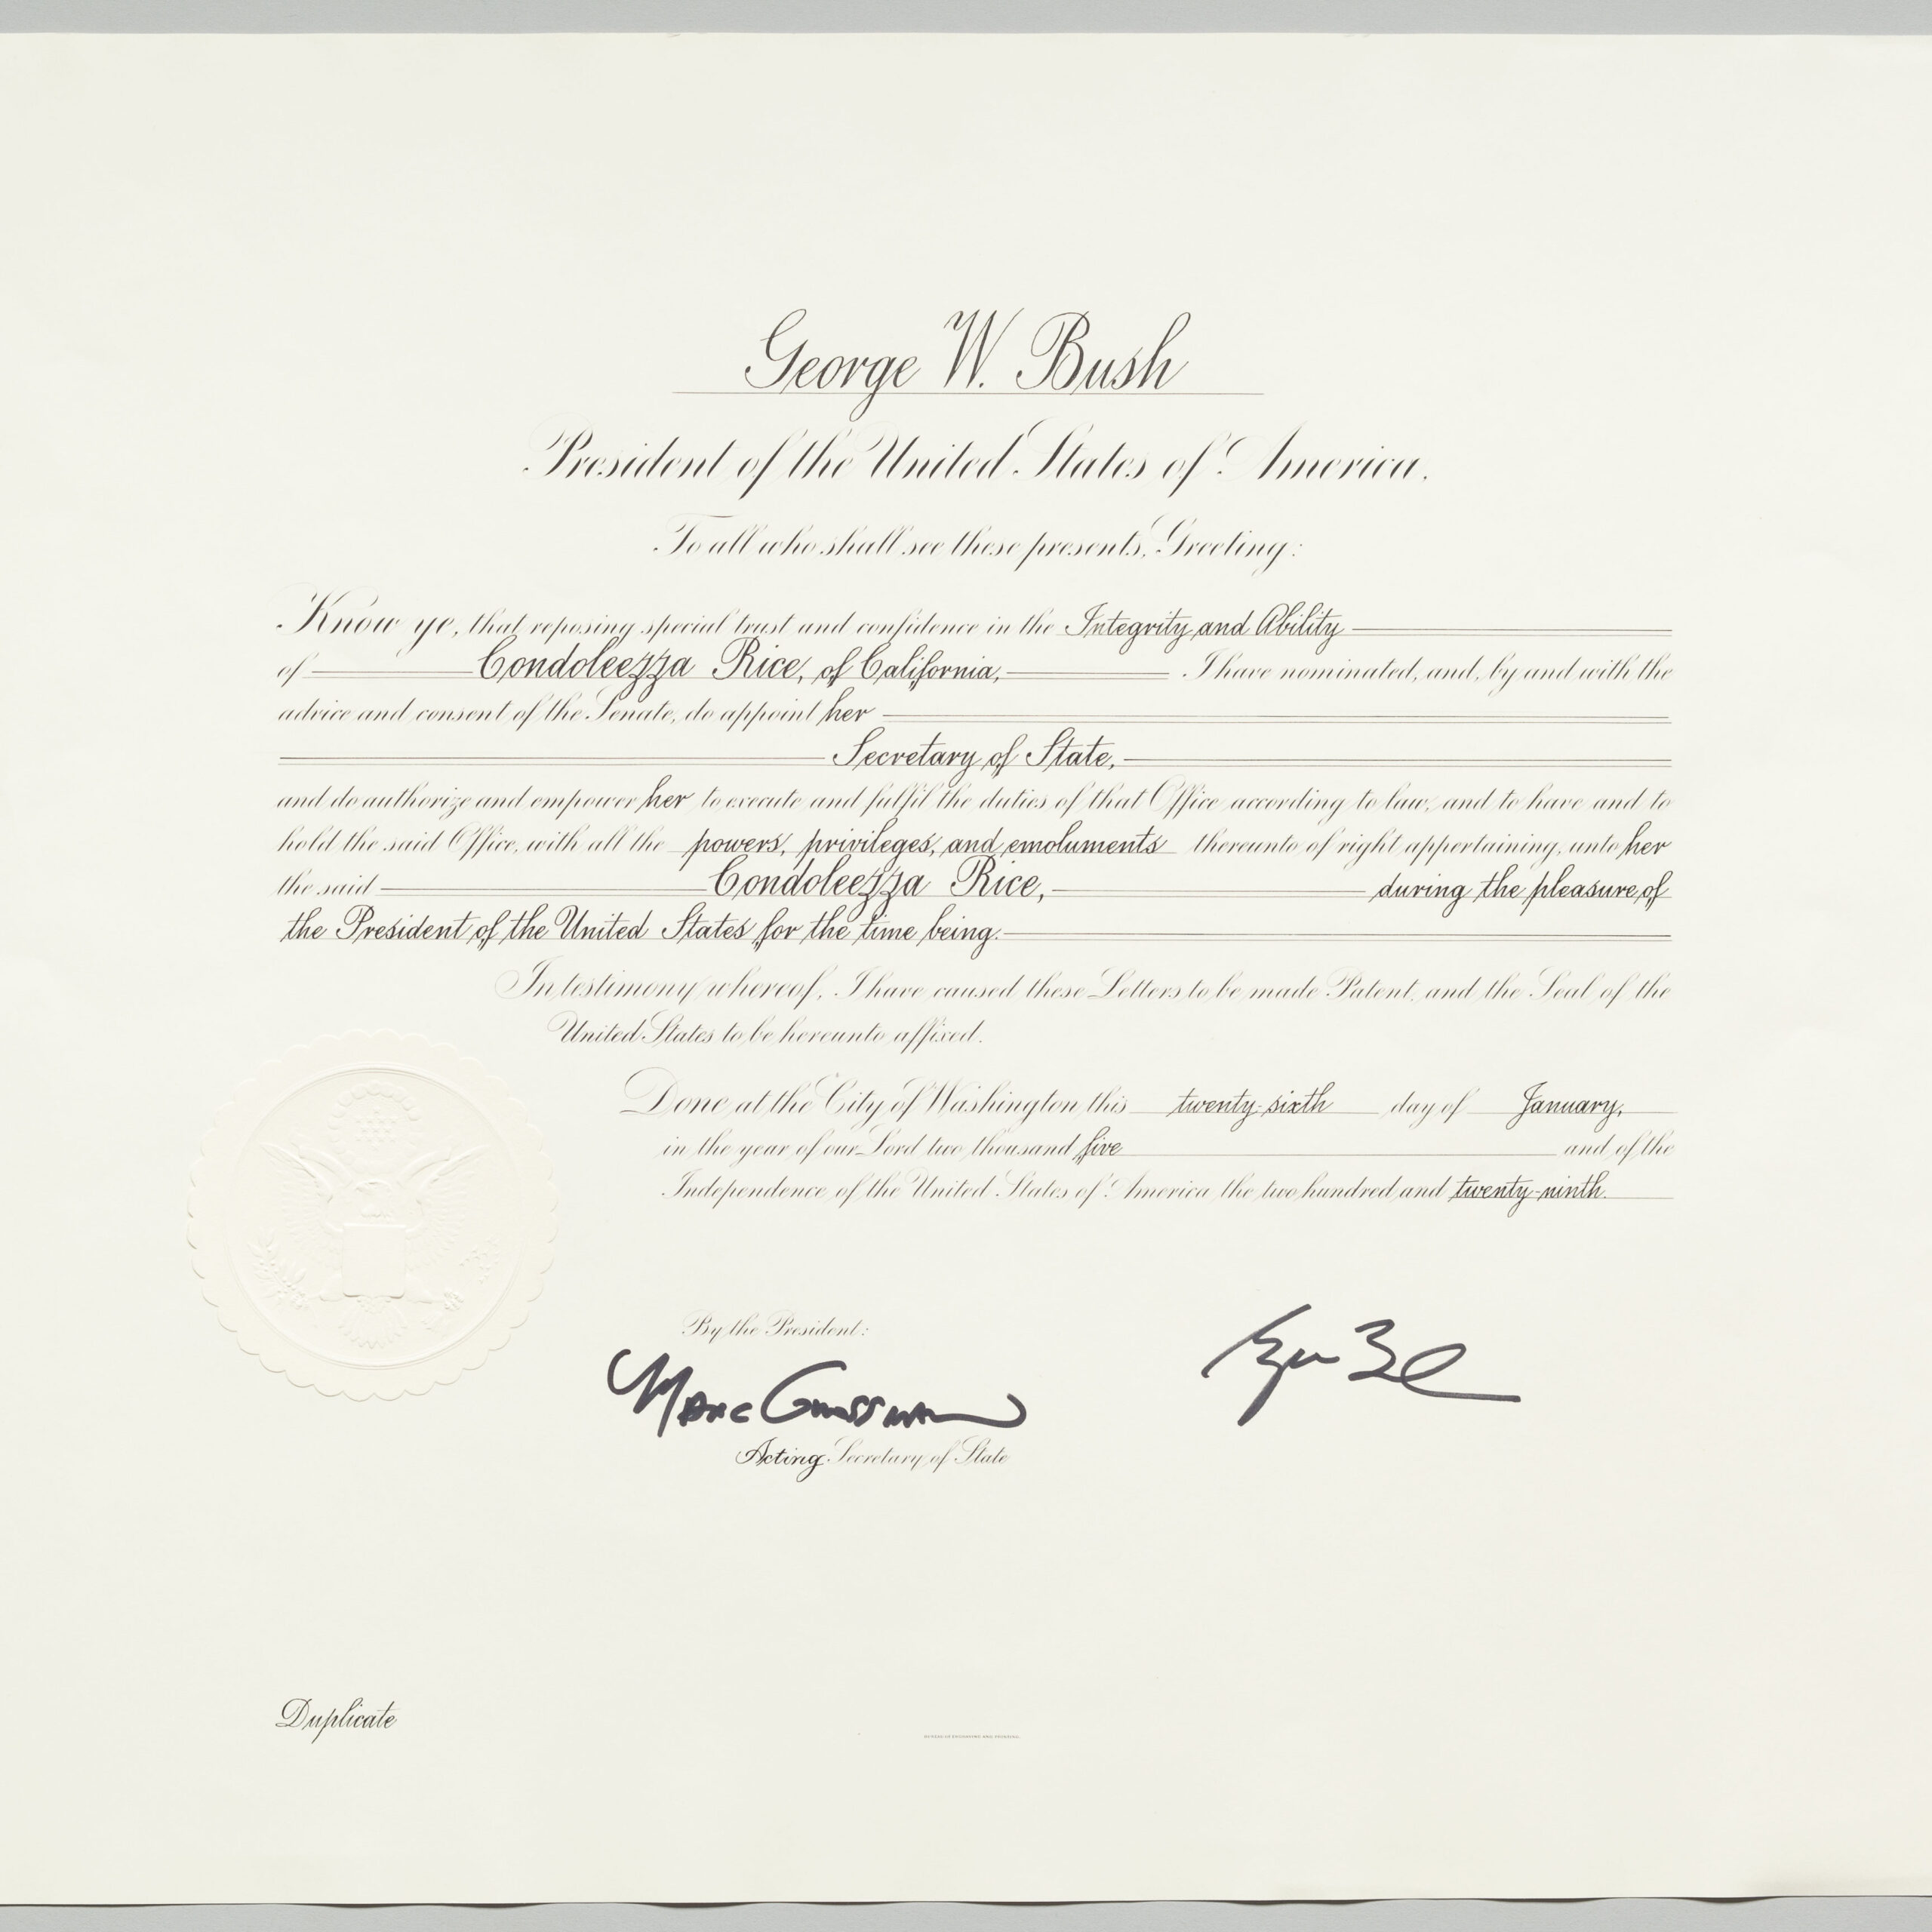 George W. Bush
President of the United States of America.
To all who shall see these presents, Greeting:
Know ye, that reposing special trust and confidence in the Integrity and Ability
of Condoleezza Rice, of California, I have nominated, and, by and with the
advice and consent of the Senate, do appoint her
Secretary of State,
and do authorize and empower her to execute and fulfil the duties of that Office according to law, and to have and to
hold the said Office, with all the powers, privileges, and emoluments thereunto of right appertaining, unto her
the said Condoleezza Rice, during the pleasure of
the President of the United States for the time being.
In testimony whereof, I have caused these Letters to be made Patent, and the Seal of the
United States to be hereunto affixed.
Done at the City of Washington this twenty-sixth day of January,
in the year of our Lord two thousand five and of the
Independence of the United States of America the two hundred and twenty-ninth.
By the President:
Marc Grossman
Acting Secretary of State
Duplicate
BUREAU OF ENGRAVING AND PRINTING